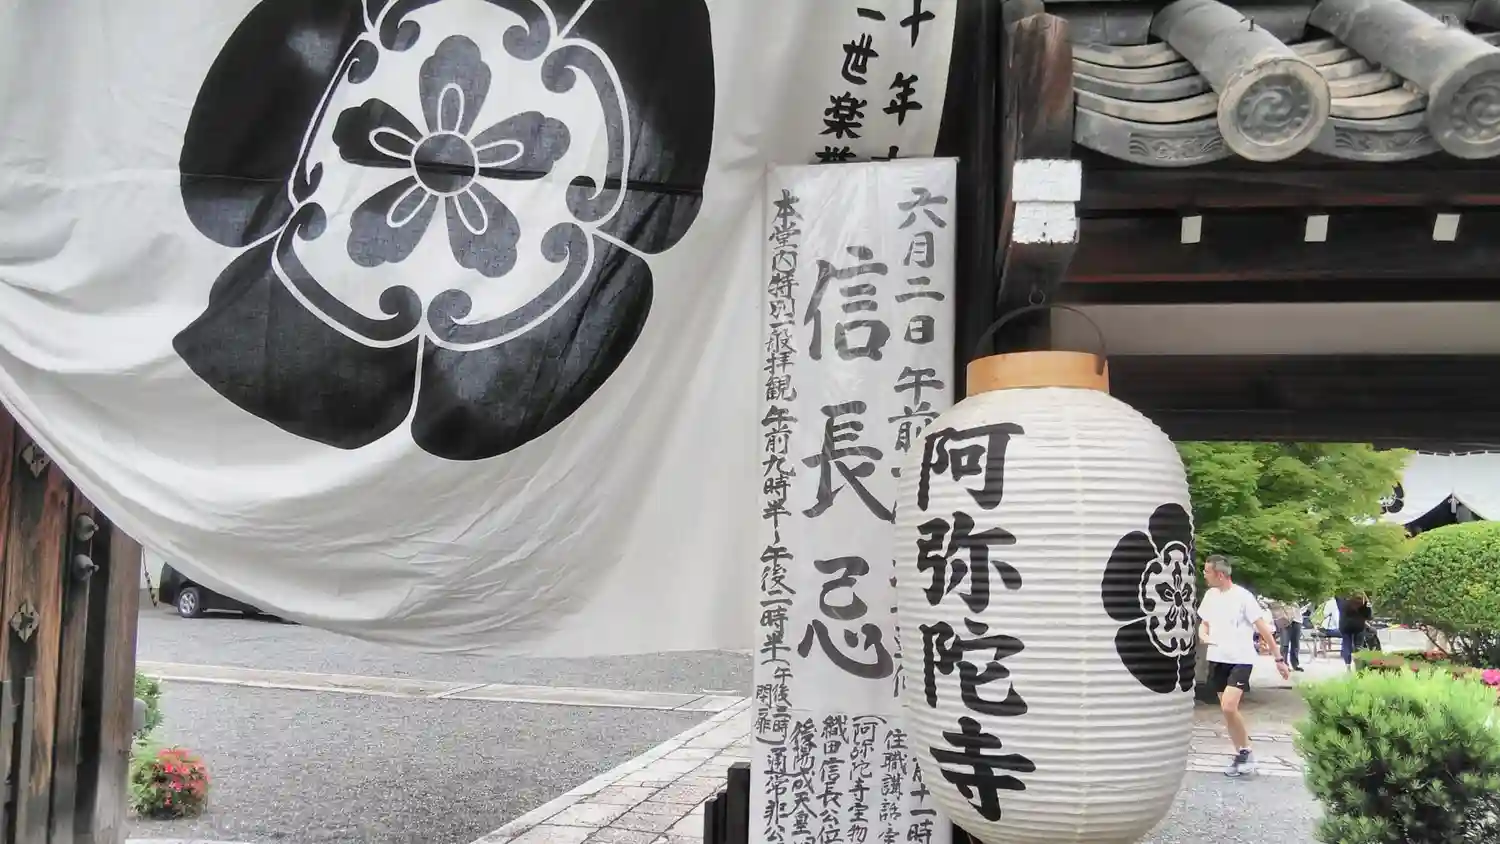 十年
一世楽
六月二日午前
信長忌
本堂内特別一般拝観午前九時半〜午後二時半(午後三時閉扉)通常非公
住職講話
(阿弥陀寺宝物
織田信長公位
後陽成天皇
十一時
阿弥陀寺